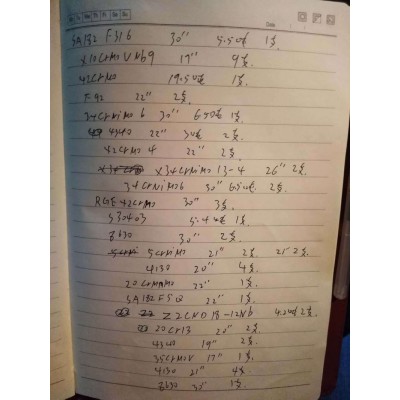 SA182 F316 30" 5.50吨 1支.
X10CrMoVNb9 17" 9支.
42CrMo 19.50吨 1支.
F92 22" 2支.
34CrNiMo6 30" 6.50吨 1支.
4340 22" 30吨 2支.
42CrMo4 22" 2支.
X3+CrNiMo 13-4 26" 2支.
34CrNiMo6 30" 6.50吨 2支.
42CrMo 30" 3支.
S30403 5.4吨 1支.
8630 30" 2支.
5CrNiMo 21" 2支. 25" 2支.
4130 20" 4支.
20CrMnMo 22" 1支.
SA182F5Q 22" 1支.
Z2CND 18-12Nb 2支.
20Cr13 20" 2支.
4340 19" 2支.
35CrMoV 17" 1支.
4130 21" 4支.
8630 30" 1支.